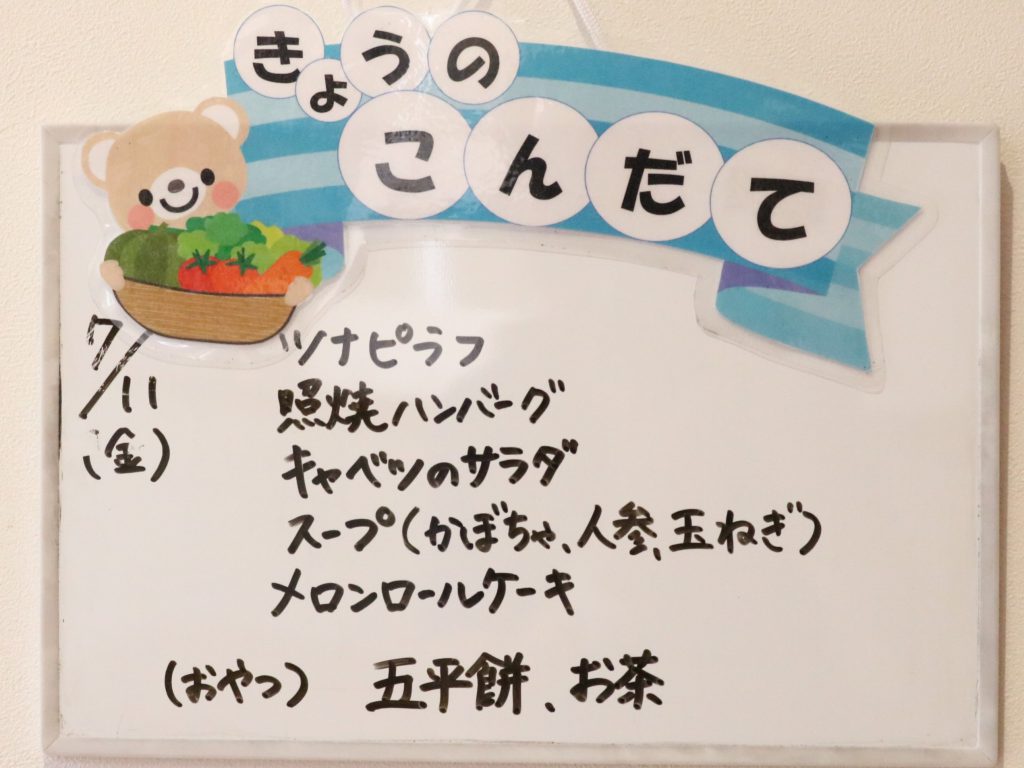 きょうの
こんだて
7/11
(金)
ツナピラフ
照焼ハンバーグ
キャベツのサラダ
スープ(かぼちゃ、人参、玉ねぎ)
メロンロールケーキ
(おやつ) 五平餅、お茶